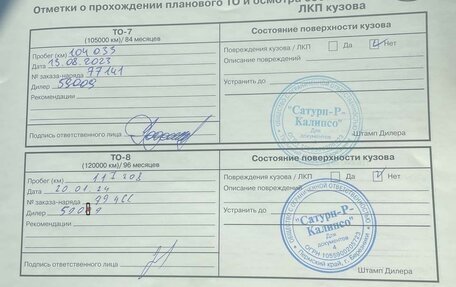 Отметки о прохождении планового ТО и осмотра
ЛКП кузова
ТО-7
(105000 км)/ 84 месяцев
Пробег (км) 104 033
Дата 13.08.2023
№ заказа-наряда 77141
Дилер 59009
Рекомендации
Подпись ответственного лица
Состояние поверхности кузова
Повреждения кузова / ЛКП Да Нет
Описание повреждений
Устранить до
"Сатурн-Р-
Калипсо"
Для
документов
Штамп Дилера
ТО-8
(120000 км)/ 96 месяцев
Пробег (км)
Дата 20.01.24
№ заказа-наряда
Дилер
Рекомендации
Подпись ответственного лица
Состояние поверхности кузова
Повреждения кузова / ЛКП Да Нет
Описание повреждений
Устранить до
ОБЩЕСТВО С ОГРАНИЧЕННОЙ ОТВЕТСТВЕННОСТЬЮ
"Сатурн-Р-
Калипсо"
Для
документов
4
Пермский край, г. Березники
Штамп Дилера